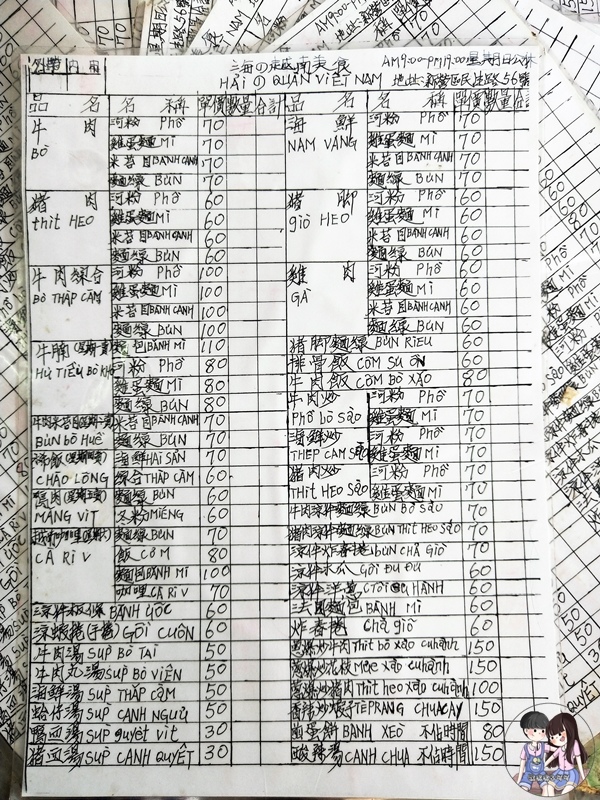 海の越南美食 AM9:00-PM19:00 星期日公休
HẢI の QUÁN VIỆT NAM 地址:新營區民生路56號
品 名 名 稱 單價 數量 合計 品 名 名 稱 單價 數量 合計
牛 肉 河粉 PHỞ 70 海 鮮 河粉 PHỞ 70
BÒ 雞蛋麵 MÌ 70 NAM VANG 雞蛋麵 MÌ 70
米苔目 BÁNH CANH 70 米苔目 BÁNH CANH 70
麵線 BÚN 70 麵線 BÚN 70
豬 肉 河粉 PHỞ 60 豬 腳 河粉 PHỞ 60
thịt HEO 雞蛋麵 MÌ 60 giò HEO 雞蛋麵 MÌ 60
米苔目 BÁNH CANH 60 米苔目 BÁNH CANH 60
麵線 BÚN 60 麵線 BÚN 60
牛肉綜合 河粉 PHỞ 100 雞 肉 河粉 PHỞ 60
BÒ THẬP CẨM 雞蛋麵 MÌ 100 GÀ 雞蛋麵 MÌ 60
米苔目 BÁNH CANH 100 米苔目 BÁNH CANH 60
麵線 BÚN 100 麵線 BÚN 60
牛腩 麵包 BÁNH MÌ 110 豬腳麵線 BÚN RIÊU 60
HỦ TIẾU BÒ KHO 河粉 PHỞ 80 排骨飯 CƠM SƯỜN 60
雞蛋麵 MÌ 80 牛肉飯 CƠM BÒ XÀO 80
麵線 BÚN 80 牛肉炒 河粉 PHỞ 70
牛肉米苔目 米苔目 BÁNH CANH 70 PHỞ BÒ SÀO 雞蛋麵 MÌ 70
BÚN BÒ HUẾ 麵線 BÚN 70 海鮮炒 河粉 PHỞ 70
海鮮 HẢI SẢN 70 THẬP CẨM SÀO 雞蛋麵 MÌ 70
CHÁO LÒNG 綜合 THẬP CẨM 60 豬肉炒 河粉 PHỞ 70
鴨肉 麵線 BÚN 60 THỊT HEO SÀO 雞蛋麵 MÌ 70
MĂNG VỊT 冬粉 MIẾNG 60 牛肉涼拌麵線 BÚN BÒ SÀO 70
越南咖哩 麵線 BÚN 70 豬肉涼拌麵線 BÚN THỊT HEO SÀO 70
CÀ RI V 飯 CƠM 80 涼拌炸春捲 BÚN CHẢ GIÒ 70
麵包 BÁNH MÌ 100 涼拌木瓜 GỎI ĐU ĐỦ 60
咖哩 CÀ RI V 70 涼拌洋蔥 GỎI CỦ HÀNH 60
涼拌板條 BÁNH ƯỚC 60 法國麵包 BÁNH MÌ 60
涼蝦捲(手捲) GỎI CUỐN 60 炸春捲 CHẢ GIÒ 60
牛肉湯 SUP BÒ TÁI 50 蔥爆炒牛肉 Thịt bò xào củ hành 150
牛肉丸湯 SUP BÒ VIÊN 50 蔥爆炒花枝 Mực xào củ hành 150
海鮮湯 SUP THẬP CẨM 50 蔥爆炒豬肉 Thịt heo xào củ hành 100
蛤仔湯 SUP CANH NGHÊU 50 香辣炒蝦子 150
鴨血湯 SUP quyết vịt 30 煎蛋餅 BÁNH XÈO 不佔時間 80
豬血湯 SUP CANH QUYẾT 30 酸辣湯 CANH CHUA 不佔時間 150